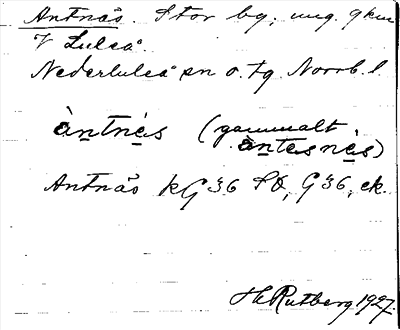 Antnäs. Stor by, ung. 9 km
V Luleå.
Nederluleå sn o. tg. Norrb. l.
àntnès (gammalt
àntesnès)
Antnäs kG 36 SO, G 36, ek.
H Rutberg 1927.